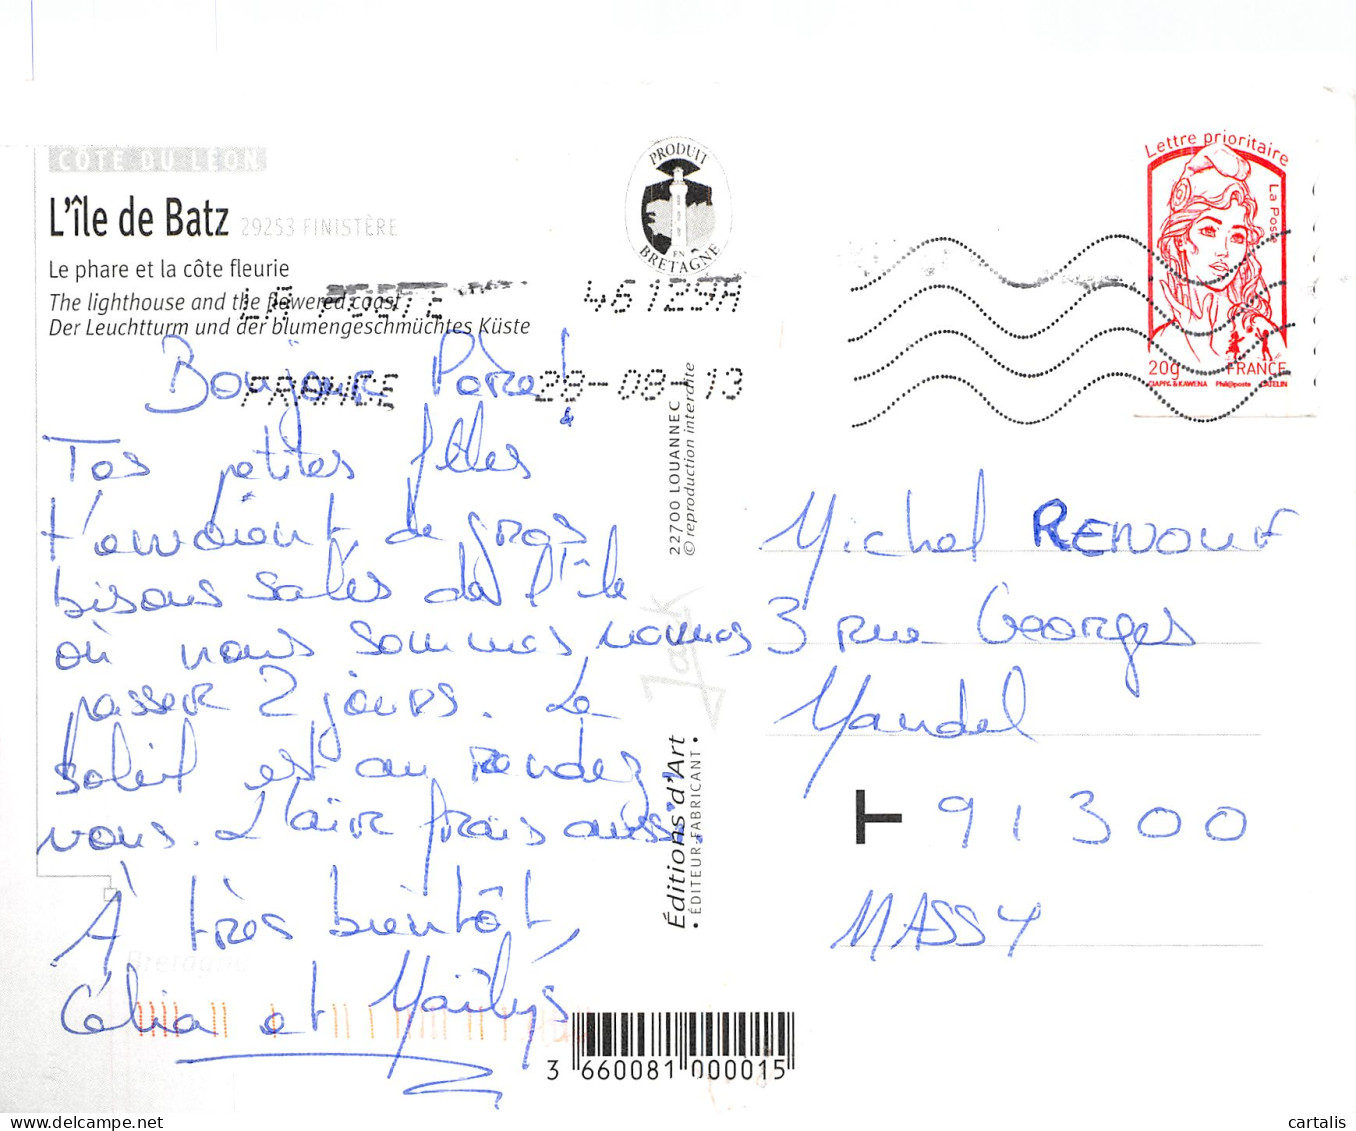 CÔTE DU LÉON
L'île de Batz 29253 FINISTÈRE
Le phare et la côte fleurie
The lighthouse and the flowered coast
Der Leuchtturm und der blumengeschmüchtes Küste
PRODUIT
EN
BRETAGNE
LA POSTE 46129A
FRANCE 28-08-13
Lettre prioritaire
La Poste
20g FRANCE
CIAPPA & KAWENA Phil@poste
Bonjour !
Tes petites filles
t'envoient de gros
bisous salés de l'île
où nous sommes venues
passer 2 jours. Le
soleil est au rendez
vous. L'air frais aussi.
À très bientôt,
Célia et Maïlys
22700 LOUANNEC
© reproduction interdite
Jack
Éditions d'Art
• ÉDITEUR-FABRICANT •
Michel RENOUF
3 rue Georges
Mandel
T 91300
MASSY
Bretagne
3 660081 000015
cartalis